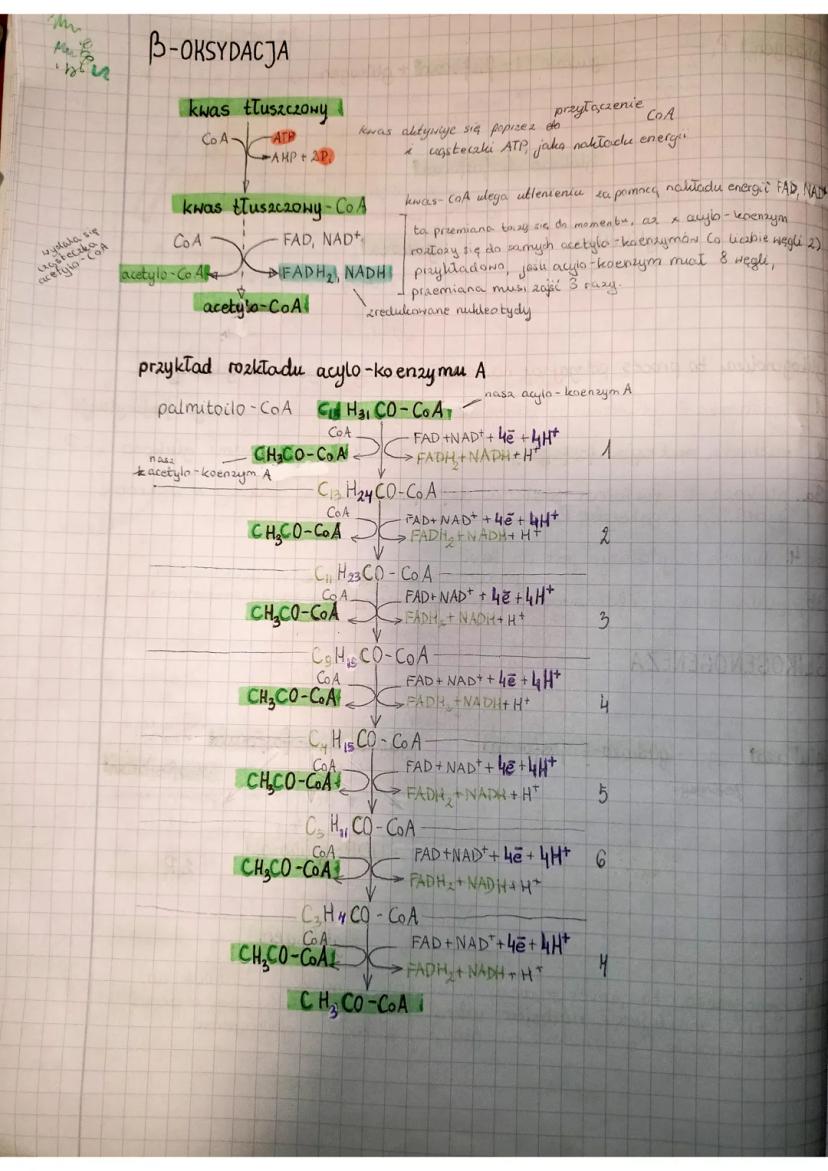 β-OKSYDACJA
kwas tłuszczowy
CoA
ATP
AMP + 2Pi
kwas aktywuje się poprzez do przyłączenie CoA
i cząsteczki ATP, jako nakładu energii
kwas tłuszczowy-CoA
kwas-CoA ulega utlenieniu za pomocą nakładu energii FAD, NAD
CoA
FAD, NAD⁺
wydala się
cząsteczka
acetylo-CoA
acetylo-CoA
FADH₂, NADH
ta przemiana toczy się do momentu, aż acylo-koenzym
rozłoży się do samych acetylo-koenzymów (o liczbie węgli 2)
przykładowo, jeśli acylo-koenzym miał 8 węgli,
przemiana musi zajść 3 razy.
acetylo-CoA
zredukowane nukleotydy
przykład rozkładu acylo-koenzymu A
palmitoilo-CoA C₁₅H₃₁CO-CoA
nasz acylo-koenzym A
CoA FAD+NAD⁺+4ē+4H⁺
CH₃CO-CoA FADH₂+NADH+H⁺ 1
nasz
acetylo-koenzym A
C₁₃H₂₇CO-CoA
CoA FAD+NAD⁺+4ē+4H⁺
CH₃CO-CoA FADH₂+NADH+H⁺ 2
C₁₁H₂₃CO-CoA
CoA FAD+NAD⁺+4ē+4H⁺
CH₃CO-CoA FADH₂+NADH+H⁺ 3
C₉H₁₉CO-CoA
CoA FAD+NAD⁺+4ē+4H⁺
CH₃CO-CoA FADH₂+NADH+H⁺ 4
C₇H₁₅CO-CoA
CoA FAD+NAD⁺+4ē+4H⁺
CH₃CO-CoA FADH₂+NADH+H⁺ 5
C₅H₁₁CO-CoA
CoA FAD+NAD⁺+4ē+4H⁺ 6
CH₃CO-CoA FADH₂+NADH+H⁺
C₃H₇CO-CoA
CoA FAD+NAD⁺+4ē+4H⁺
CH₃CO-CoA FADH₂+NADH+H⁺ 7
CH₃CO-CoA